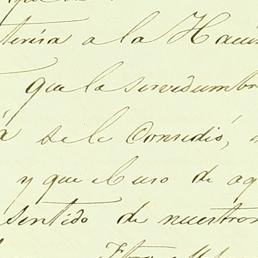 a la Hacien
que la servidumbre
se le Concedió,
y que el uso de ag
sentido de nuestro